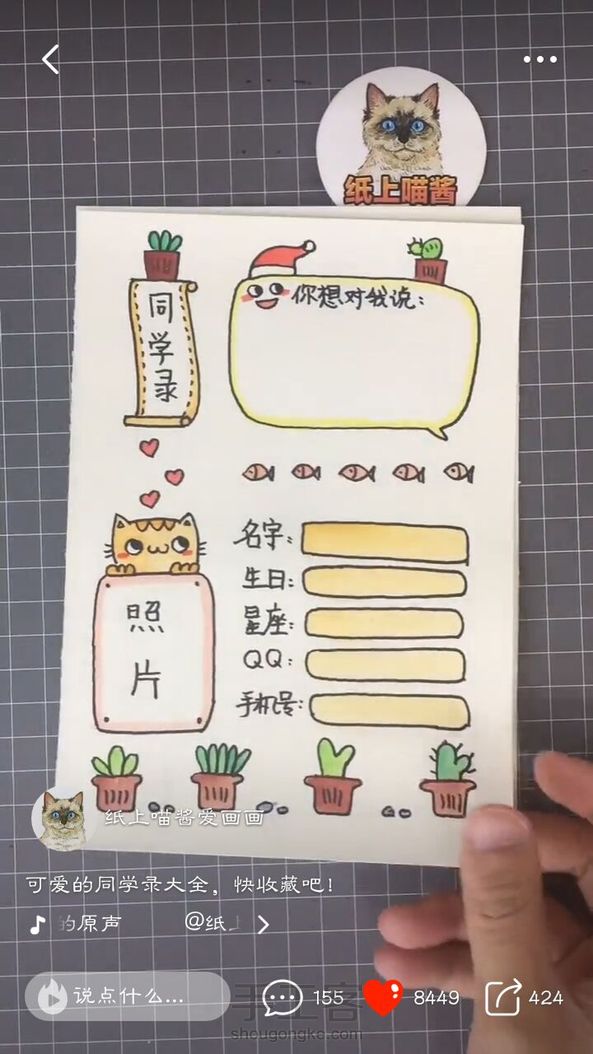 纸上喵酱
同学录
你想对我说：
名字：
生日：
星座：
QQ：
手机号：
照片
纸上喵酱爱画画
可爱的同学录大全，快收藏吧！
的原声 @纸上
说点什么... 155 8449 424
手工客
shougongke.com